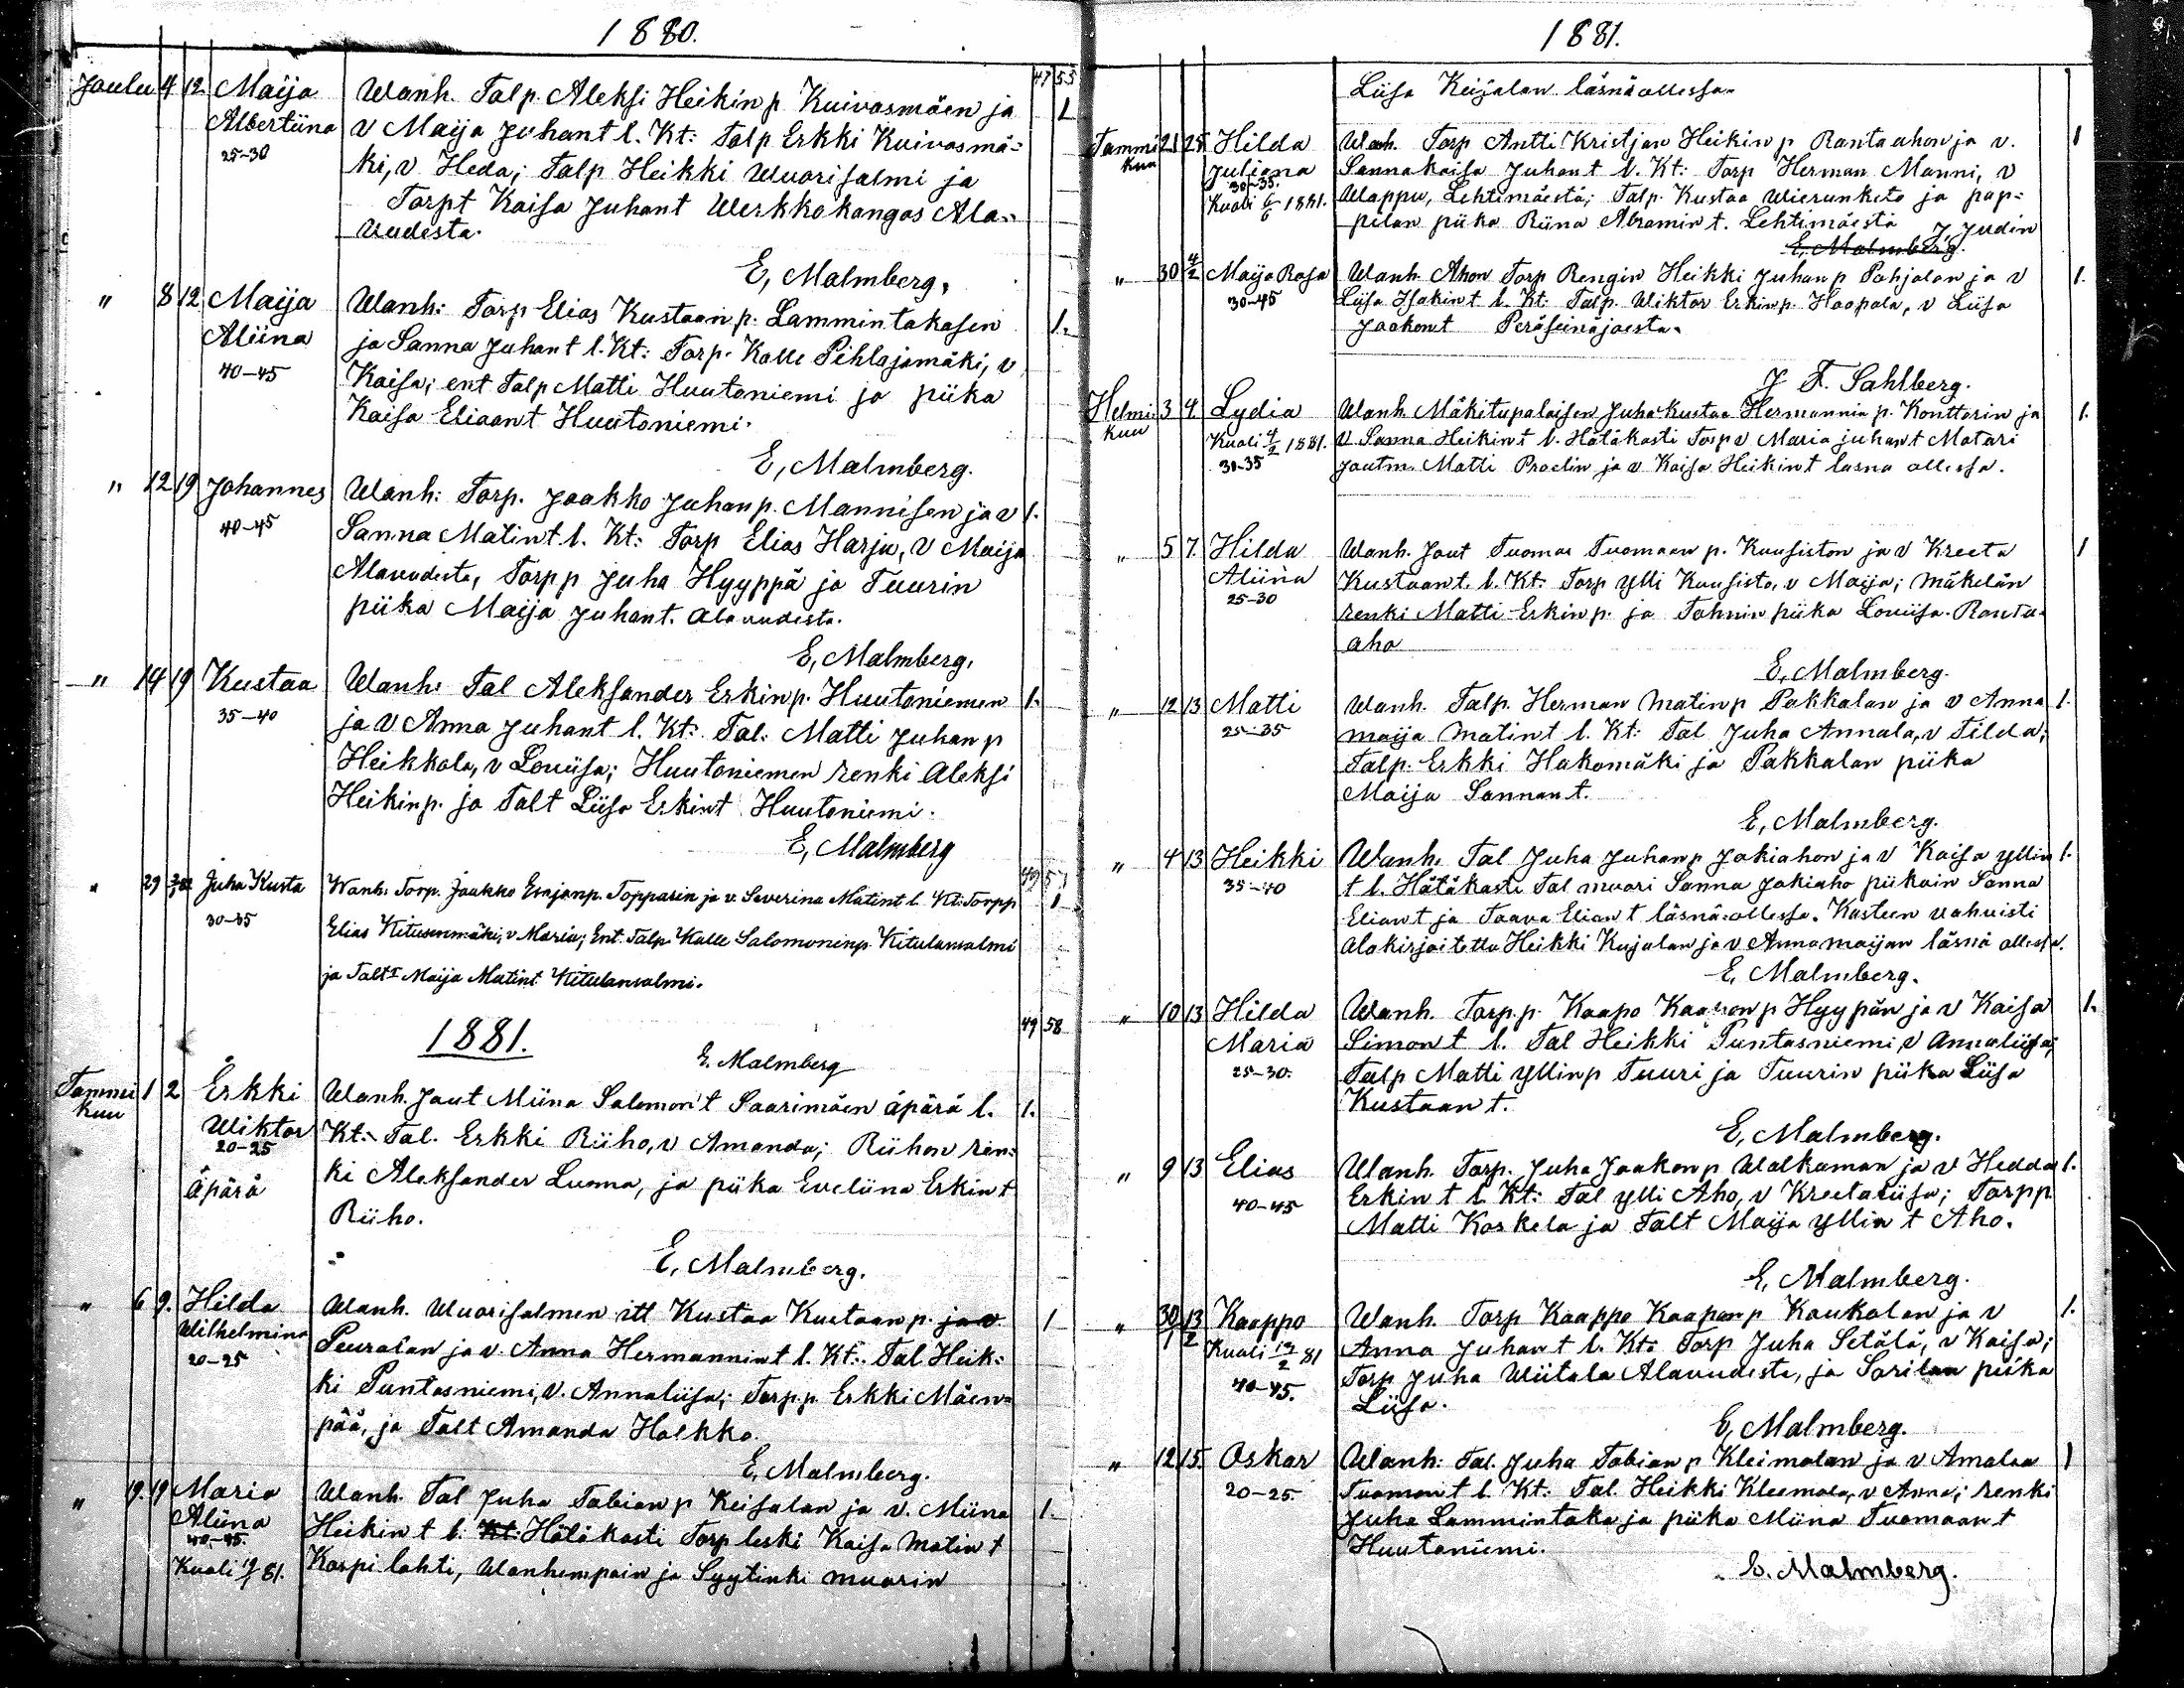 1880.
47 55
Joulu 4 12. Maija Wanh. Talp. Aleksi Heikin p. Kuivasmäen ja 1
Albertiina v Maija Juhant l. Kt: Talp Erkki Kuivasmä-
25-30 ki, v Heda; Talp Heikki Wuorisalmi ja
Torpt Kaisa Juhant Werkkokangas Ala-
vudesta.
E, Malmberg,
" 8 12 Maija Wanh: Torp Elias Kustaan p. Lammintakasen 1.
Aliina ja Sanna Juhant l. Kt: Torp. Kalle Pihlajamäki, v
40-45 Kaisa; ent Talp Matti Huutoniemi ja piika
Kaisa Eliaant Huutoniemi.
E, Malmberg.
" 12 19 Johannes Wanh: Torp. Jaakko Juhan p. Mannisen ja v 1.
40-45 Sanna Matint l. Kt: Torp Elias Harju, v Maija
Alavudesta, Torpp Juha Hyyppä ja Tuurin
piika Maija Juhant. Alavudesta.
E, Malmberg,
" 14 19 Kustaa Wanh: Tal Aleksander Erkin p. Huutoniemen 1.
35-40 ja v Anna Juhant l. Kt: Tal. Matti Juhan p
Heikkola, v Louiisa; Huutoniemen renki Aleksi
Heikin p. ja Talt Liisa Erkint Huutoniemi.
E, Malmberg
49 57
" 29 Juha Kusta Wanh: Torp. Jaakko Esajanp. Topparin ja v. Severina Matint l. Kt: Torpp 1
30-35 Elias Kitusenmäki, v Maria; Ent. Talp Kalle Salomoninp Kitulansalmi
ja Talt Maija Matint Kitulansalmi.
49 58
1881.
E. Malmberg
Tammi 1 2 Erkki Wanh. Jout Miina Salomont Saarimäen äpärä l. 1.
kuu Wiktor Kt: Tal. Erkki Riiho, v Amanda; Riihon ren-
20-25 ki Aleksander Luoma, ja piika Eveliina Erkint
äpärä Riiho.
E, Malmberg.
" 6 9. Hilda Wanh. Wuorisalmen itt Kustaa Kustaan p. ja v 1
Wilhelmina Peuralan ja v. Anna Hermannint l. Kt: Tal Heik-
20-25 ki Puntasniemi, v. Annaliisa; Torpp. Erkki Mäen-
pää, ja Talt Amanda Holkko.
E, Malmberg.
" 19. 19 Maria Wanh. Tal Juha Tabian p Keisalan ja v. Miina 1.
Aliina Heikint l. Kt: Hätäkasti Torp leski Kaisa Matint
40-45. Karpilahti, Wanhempain ja Syytinki muorin
Kuoli 19/1 81.
1881.
Liisa Keisalan läsnäollessa.
Tammi 21 25 Hilda Wanh. Torp Antti Kristjan Heikin p Rantaahon ja v. 1
kuu Juliana Sannakaisa Juhant l. Kt: Torp Herman Manni, v
30-35. Wappu, Lehtimäestä; Talp. Kustaa Wierunketo ja pap-
Kuoli 6/6 1881. pilan piika Riina Abramint. Lehtimäestä
J, Judin
E, Malmberg.
" 30 4/2 Maija Rosa Wanh. Ahon Torp Rengin Heikki Juhan p Pohjalan ja v 1.
30-45 Liisa Isakint l. Kt: Talp. Wiktor Erkinp. Haapala, v Liisa
Jaakont Peräseinäjoesta.
J F. Sahlberg.
Helmi 3 4. Lydia Wanh. Mäkitupalaisen Juha Kustaa Hermannin p. Konttorin ja 1.
kuu Kuoli 4/2 1881. v Sanna Heikint l. Hätäkasti Torp v Maria Juhant Matari
30-35 Joutm. Matti Proclin ja v Kaisa Heikint lasna ollessa.
" 5 7. Hilda Wanh. Jout Tuomas Tuomaan p. Kuusiston ja v Kreeta 1
Aliina Kustaant. l. Kt: Torp Ylli Kuusisto, v Maija; Mäkelän
25-30 renki Matti Erkin p. ja Tohnin piika Louiisa Ranta-
aho
E, Malmberg.
" 12 13 Matti Wanh. Talp. Herman Matin p Pakkalan ja v Anna 1.
25-35 maija Matint l. Kt: Tal Juha Annala, v Tilda;
Talp. Erkki Hakomäki ja Pakkalan piika
Maija Sannant.
E, Malmberg.
" 4 13 Heikki Wanh. Tal Juha Juhan p Jokiahon ja v Kaisa Yllin 1.
35-40 t l. Hätäkasti Tal muori Sanna Jokiaho piikain Sanna
Eliant ja Taava Eliant läsnä ollessa. Kasteen vahvisti
alakirjoitettu Heikki Kujalan ja v Annamaijan läsnä ollessa.
E, Malmberg.
" 10 13 Hilda Wanh. Torpp. Kaapo Kaapon p Hyypän ja v Kaisa 1.
Maria Simont l. Tal Heikki Puntasniemi, v Annaliisa;
25-30. Talp Matti Yllinp Tuuri ja Tuurin piika Liisa
Kustaant.
E, Malmberg.
" 9 13 Elias Wanh. Torp. Juha Jaakon p Walkaman ja v Hedda 1.
40-45 Erkint l. Kt: Tal Ylli Aho, v Kreetaliisa; Torpp.
Matti Koskela ja Talt Maija Yllint Aho.
E, Malmberg.
" 30/1 13/2 Kaappo Wanh. Torp Kaappo Kaapon p Koukolan ja v 1.
Kuoli 19/2 81 Anna Juhant l. Kt: Torp Juha Setälä, v Kaisa;
40-45. Torp Juha Wiitala Alavudesta, ja Sarilan piika
Liisa.
E, Malmberg.
" 12 15. Oskar Wanh: Tal. Juha Tabian p Kleimolan ja v Amalaa 1
20-25. Tuomont l. Kt: Tal. Heikki Kleemola, v Anna; renki
Juha Lammintaka ja piika Miina Tuomaant
Huutoniemi.
E. Malmberg.